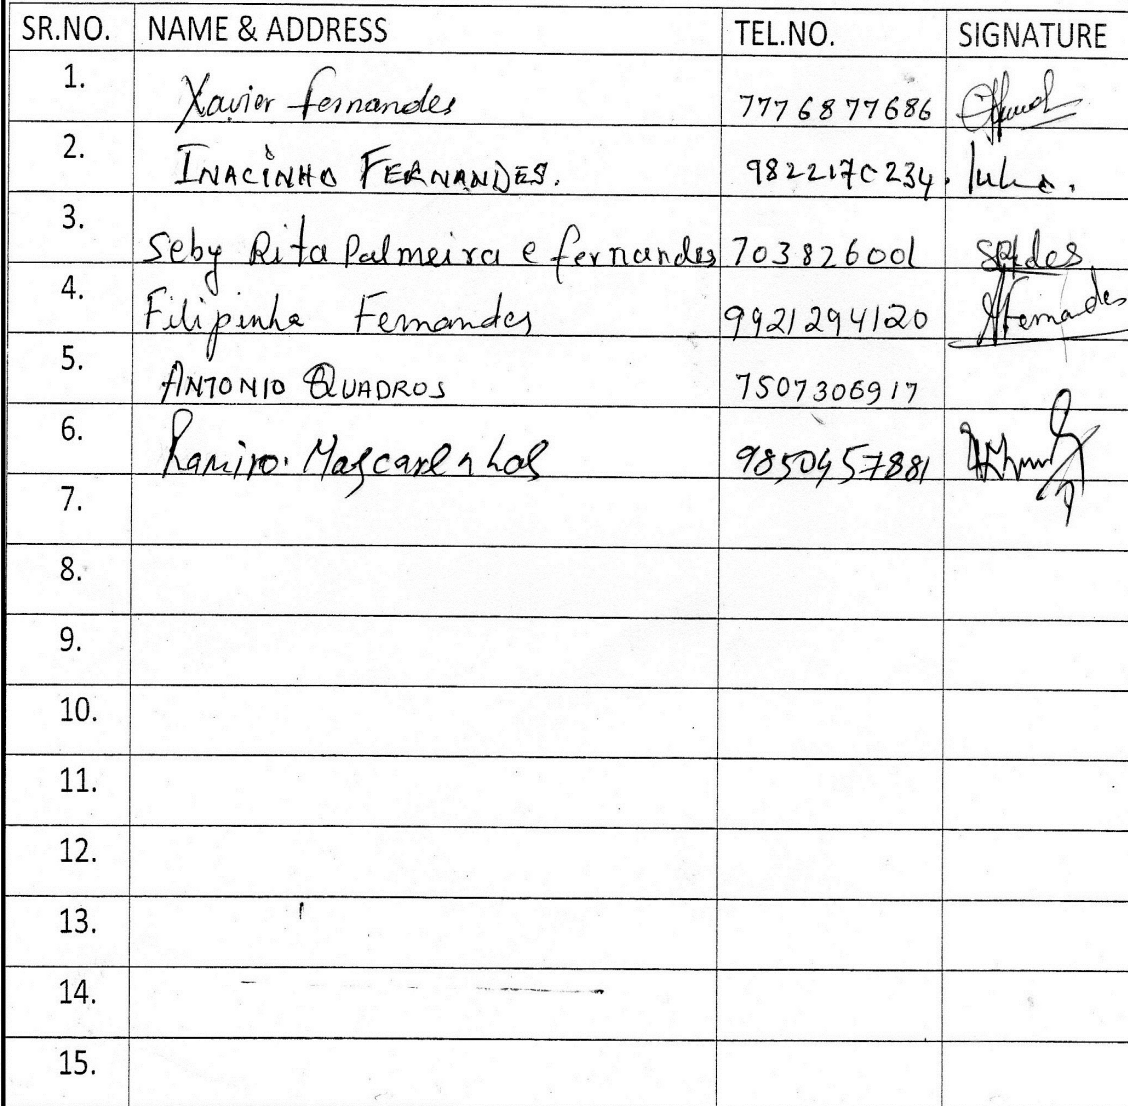 SR.NO. NAME & ADDRESS TEL.NO. SIGNATURE
1. Xavier Fernandes 7776877686
2. INACINHO FERNANDES. 982217C234.
3. Seby Rita Palmeira e fernandes 703826001
4. Filipinha Fernandes 9921294120 Fernandes
5. ANTONIO QUADROS 7507306917
6. Ramiro. Mascarenhas 9850457881
7.
8.
9.
10.
11.
12.
13.
14.
15.